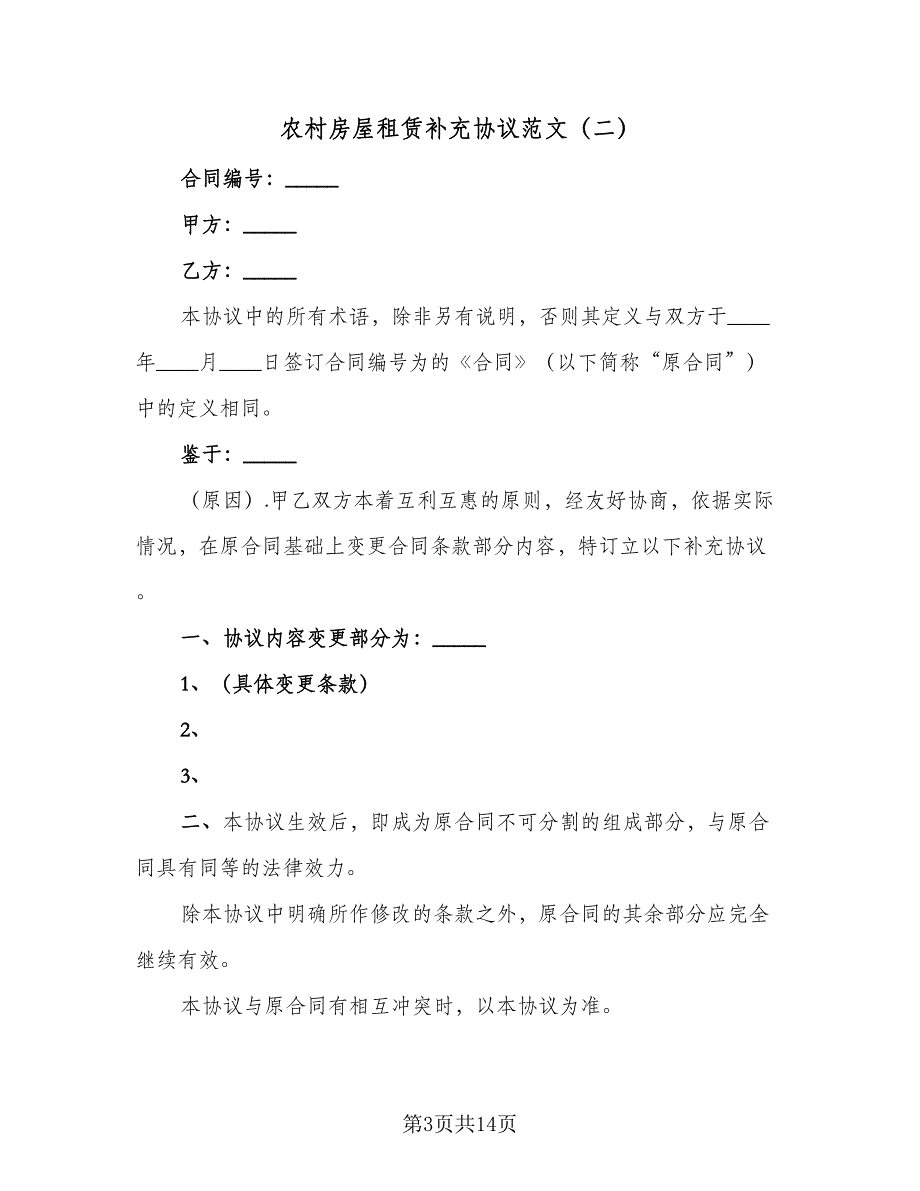 农村房屋租赁补充协议范文（二）
合同编号：_____
甲方：_____
乙方：_____
本协议中的所有术语，除非另有说明，否则其定义与双方于____
年____月____日签订合同编号为的《合同》（以下简称“原合同”）
中的定义相同。
鉴于：_____
（原因）.甲乙双方本着互利互惠的原则，经友好协商，依据实际
情况，在原合同基础上变更合同条款部分内容，特订立以下补充协议
。
一、协议内容变更部分为：_____
1、（具体变更条款）
2、
3、
二、本协议生效后，即成为原合同不可分割的组成部分，与原合
同具有同等的法律效力。
除本协议中明确所作修改的条款之外，原合同的其余部分应完全
继续有效。
本协议与原合同有相互冲突时，以本协议为准。
第3页共14页